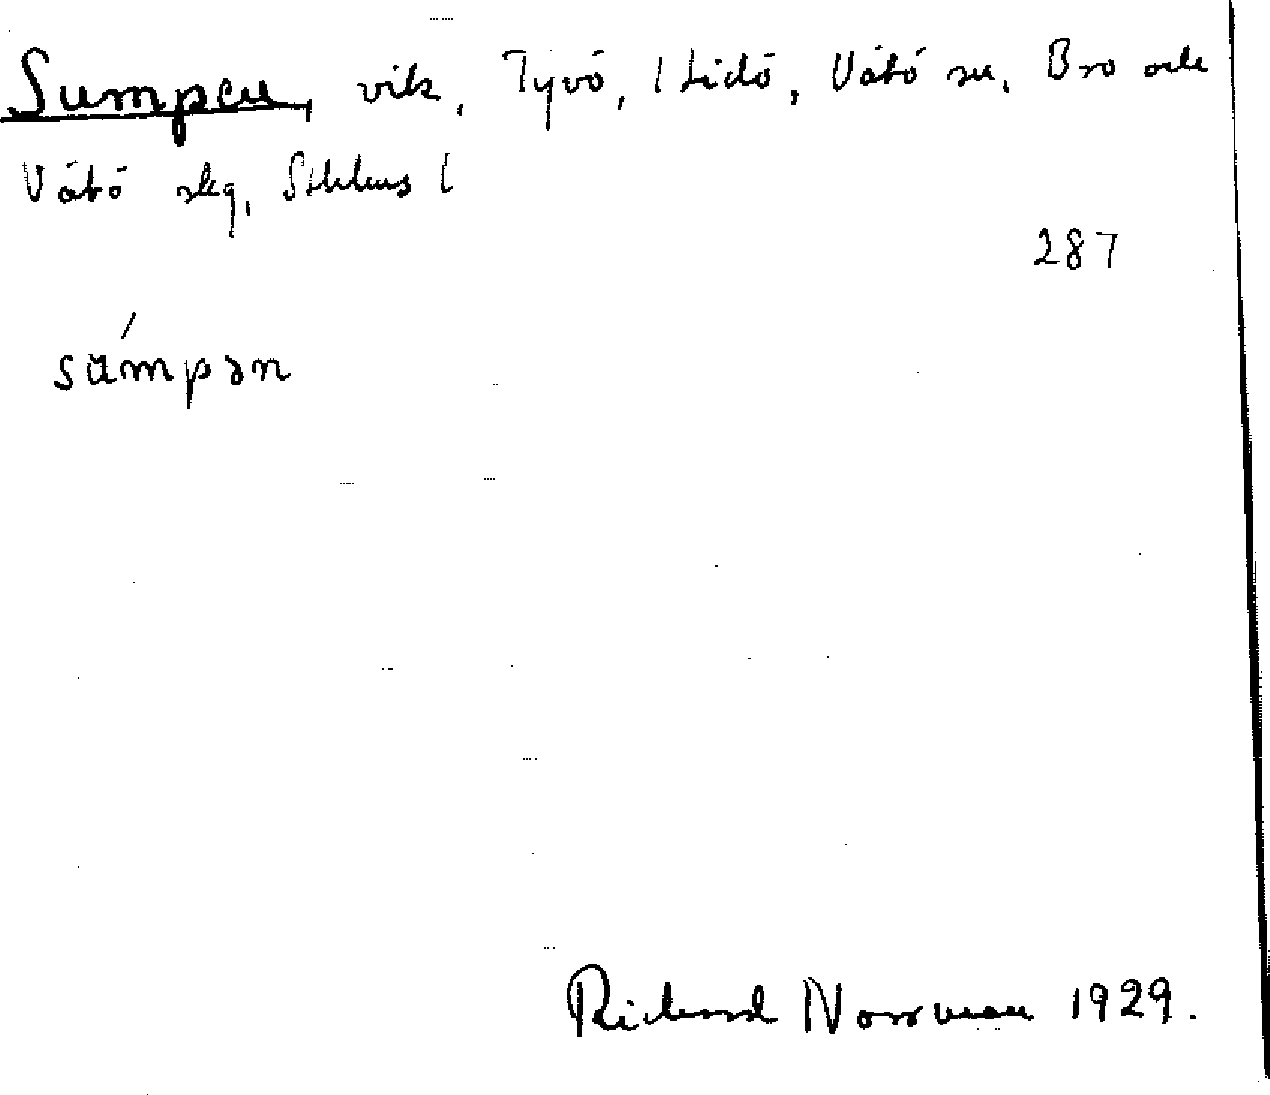 Sumpen, vik, Tyvö, 1 Lidö, Vätö sn, Bro och
Vätö skg, Sthlms l
287
súmpən
Rickard Norrman 1929.